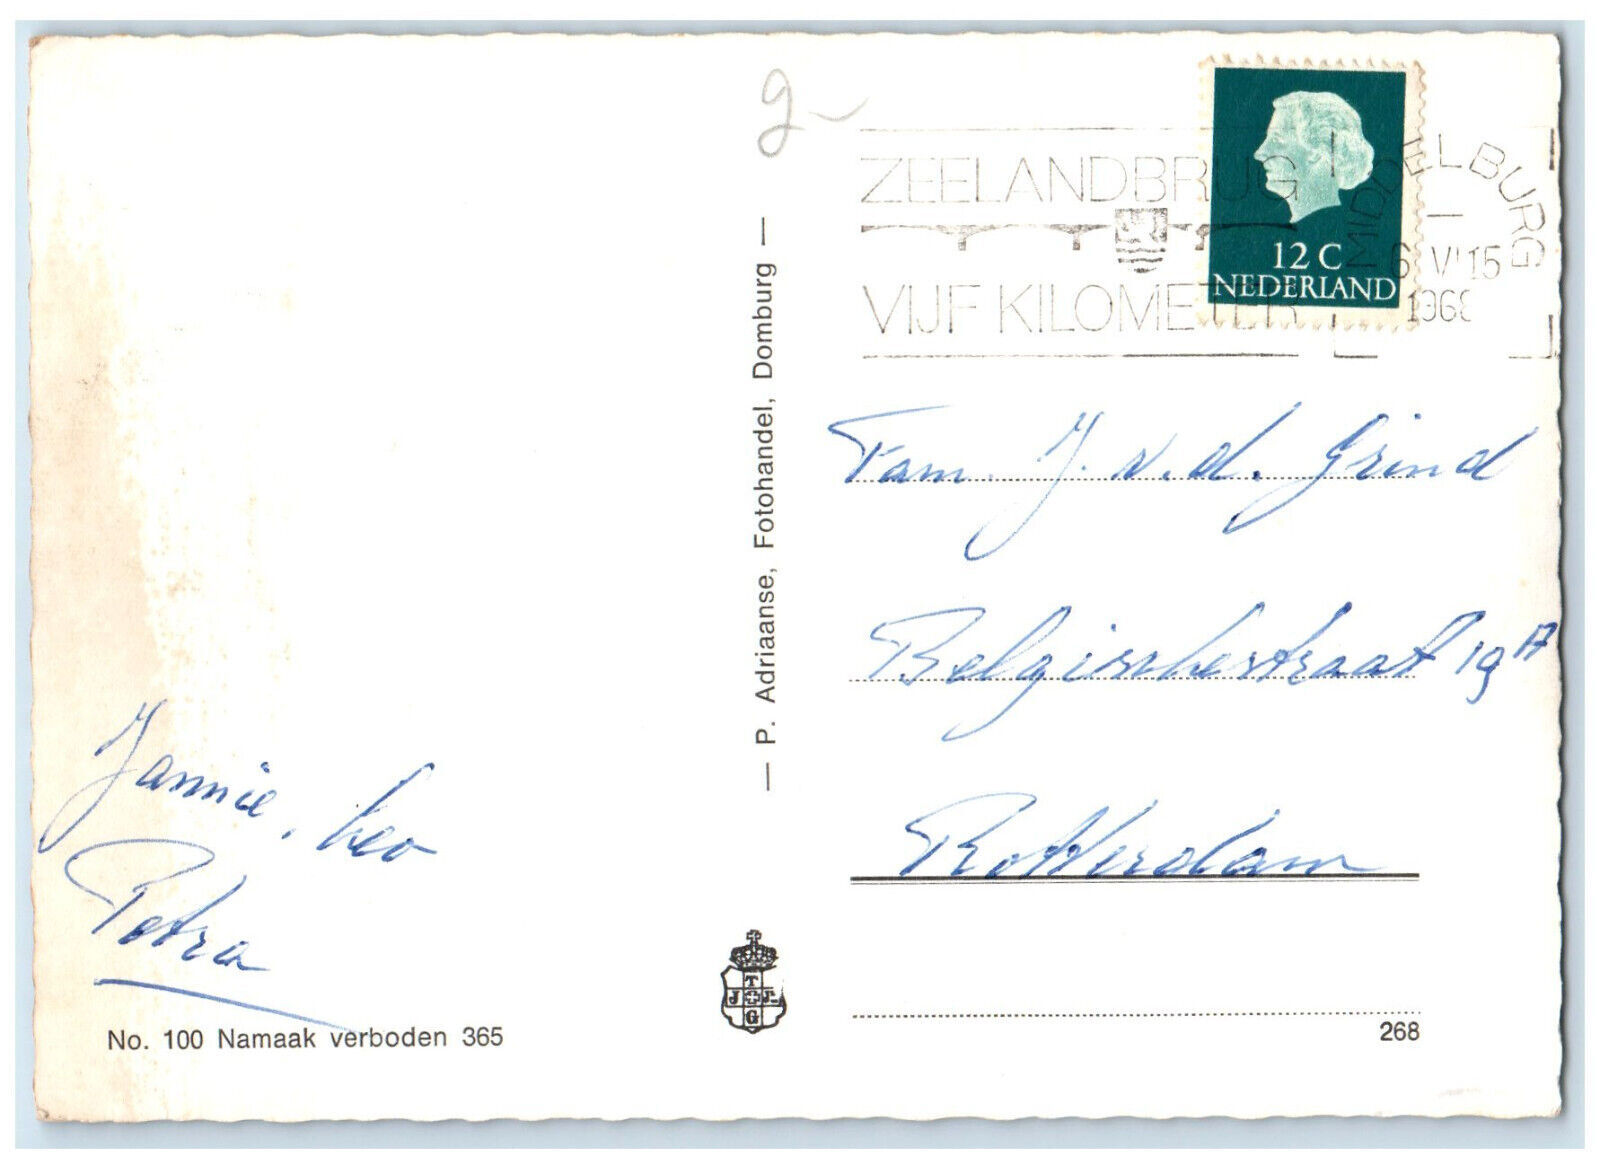 g
ZEELANDBRUG
VIJF KILOMETER
MIDDELBURG
6 VI 15
1968
12 C
NEDERLAND
— P. Adriaanse, Fotohandel, Domburg —
Fam. J. v. d. Grind
Belgischestraat 19 A
Rotterdam
Jannie, Leo
Petra
T
J J
G
No. 100 Namaak verboden 365
268